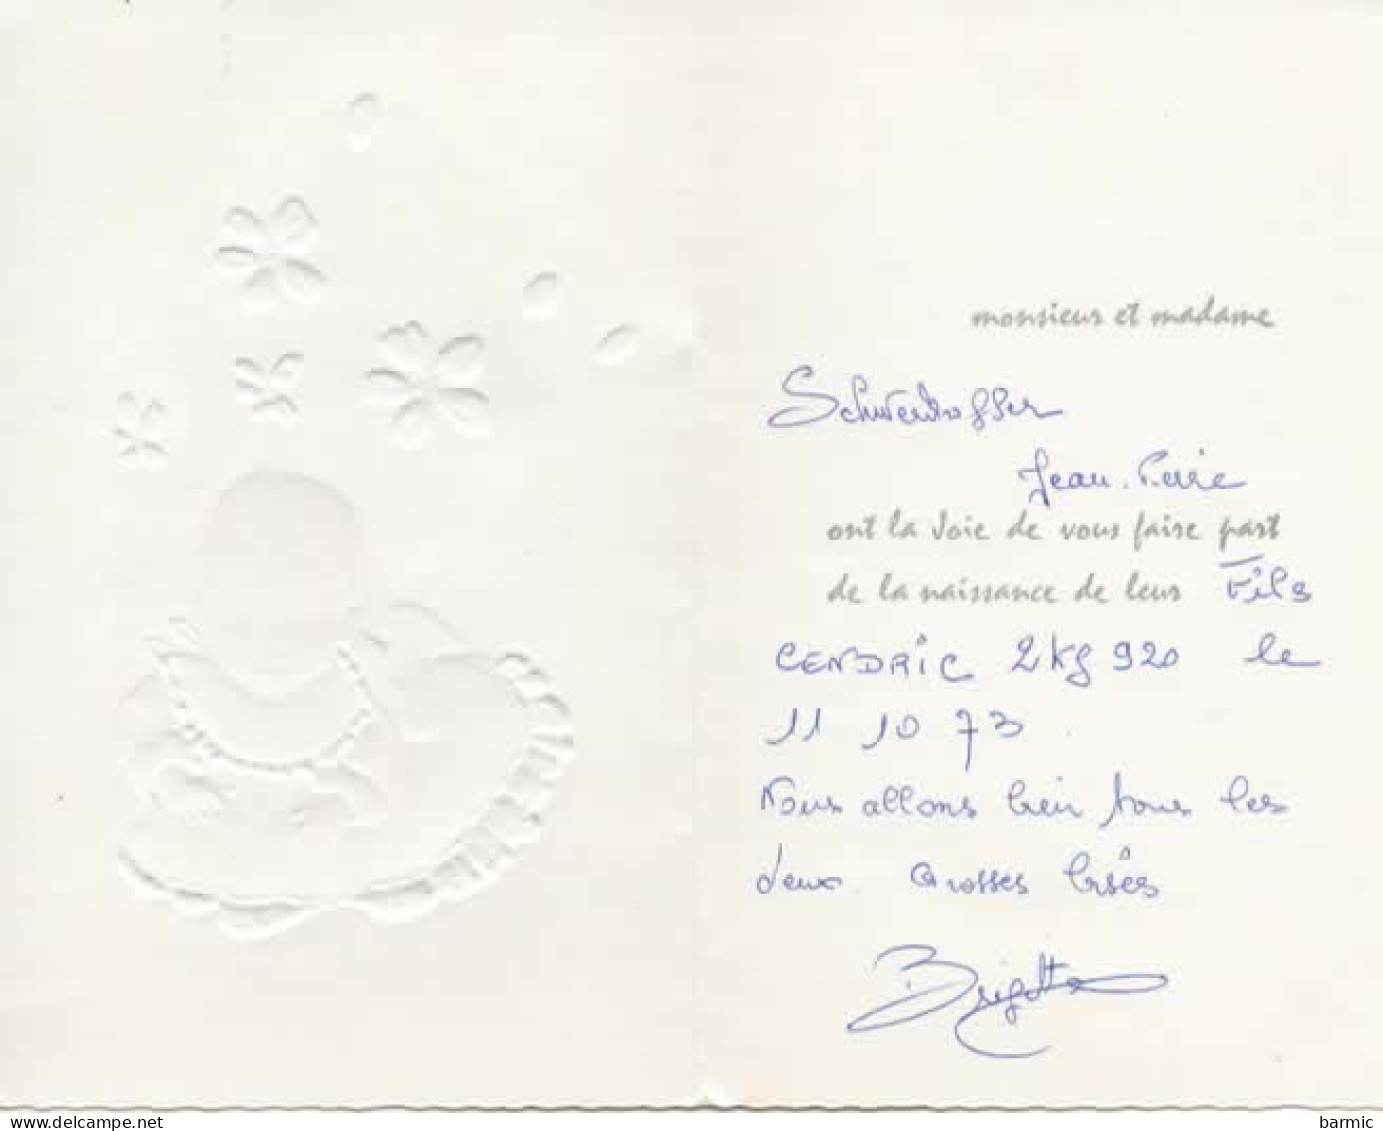 monsieur et madame
Schweikoffer
Jean-Pierre
ont la Joie de vous faire part
de la naissance de leur Fils
CENDRIC 2kg 920 le
11 10 73.
Nous allons bien tous les
deux. Grosses bises
Brigitte
delcampe.net
barmic